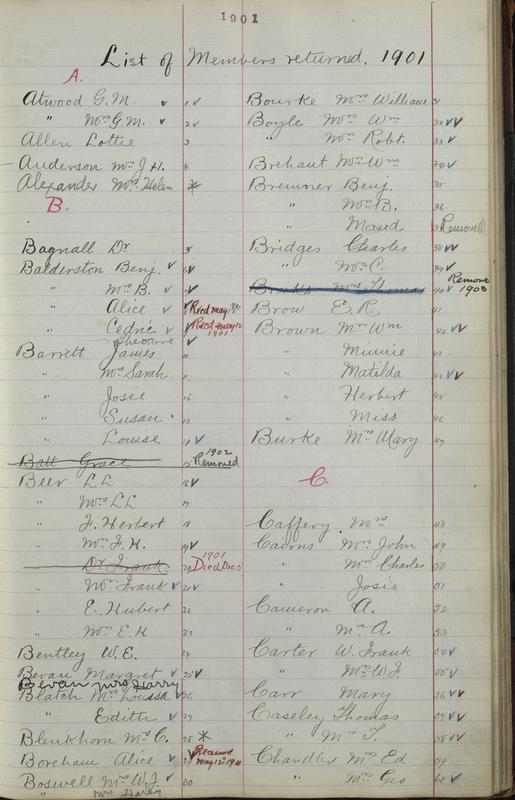 1901
List of Members returned, 1901
A.
Atwood G.M. 1
" Mrs G.M. 2
Allen Lottie 3
Anderson Mrs J.H. 4
Alexander Mrs Helen *
B.
Bagnall Dr 5
Balderston Benj. 6
" Mrs B.
" Alice Recd may
" Cedric Recd may 12
1901
Theodore
Barrett James 10
" Mrs Sarah 11
" Josie 12
" Susan 13
" Louise 14
1902
Batt Grace 15 Removed
Beer LL 16
" Mrs LL 17
" J. Herbert 18
" Mrs J.H. 19
1901
" Dr Frank 20 Died Dec
" Mrs Frank 21
" E. Hubert 22
" Mrs E.H 23
Bentley W.E. 24
Bevan Margret 25
Bevan Mrs Harry
Blatch Mrs Louisa 26
" Edith 27
Blenkhorn Mrs C. 28 *
Boreham Alice 29 Received
may 12th 1901
Boswell Mrs W.J. 30
" Mrs Harry
Bourke Mrs William 31
Boyle Mrs Wm 32
" Mrs Robt. 33
Brehaut Mrs Wm 34
Bremner Benj. 35
" Mrs B. 36
" Maud 37 Removed
Bridges Charles 38
" Mrs C. 39
Mrs Thomas 40 Remove
1900
Brow E.R. 41
Brown Mrs Wm 42
" Minnie
" Matilda
" Herbert 45
" Miss 46
Burke Mrs Mary 47
C.
Caffery Mrs 48
Cairns Mrs John 49
" Mrs Charles 50
" Josie 51
Cameron A. 52
" Mrs A. 53
Carter W. Frank 54
" Mrs W.F. 55
Carr Mary 56
Caseley Thomas 57
" Mrs T. 58
Chandler Mrs Ed 59
" Mrs Geo 60